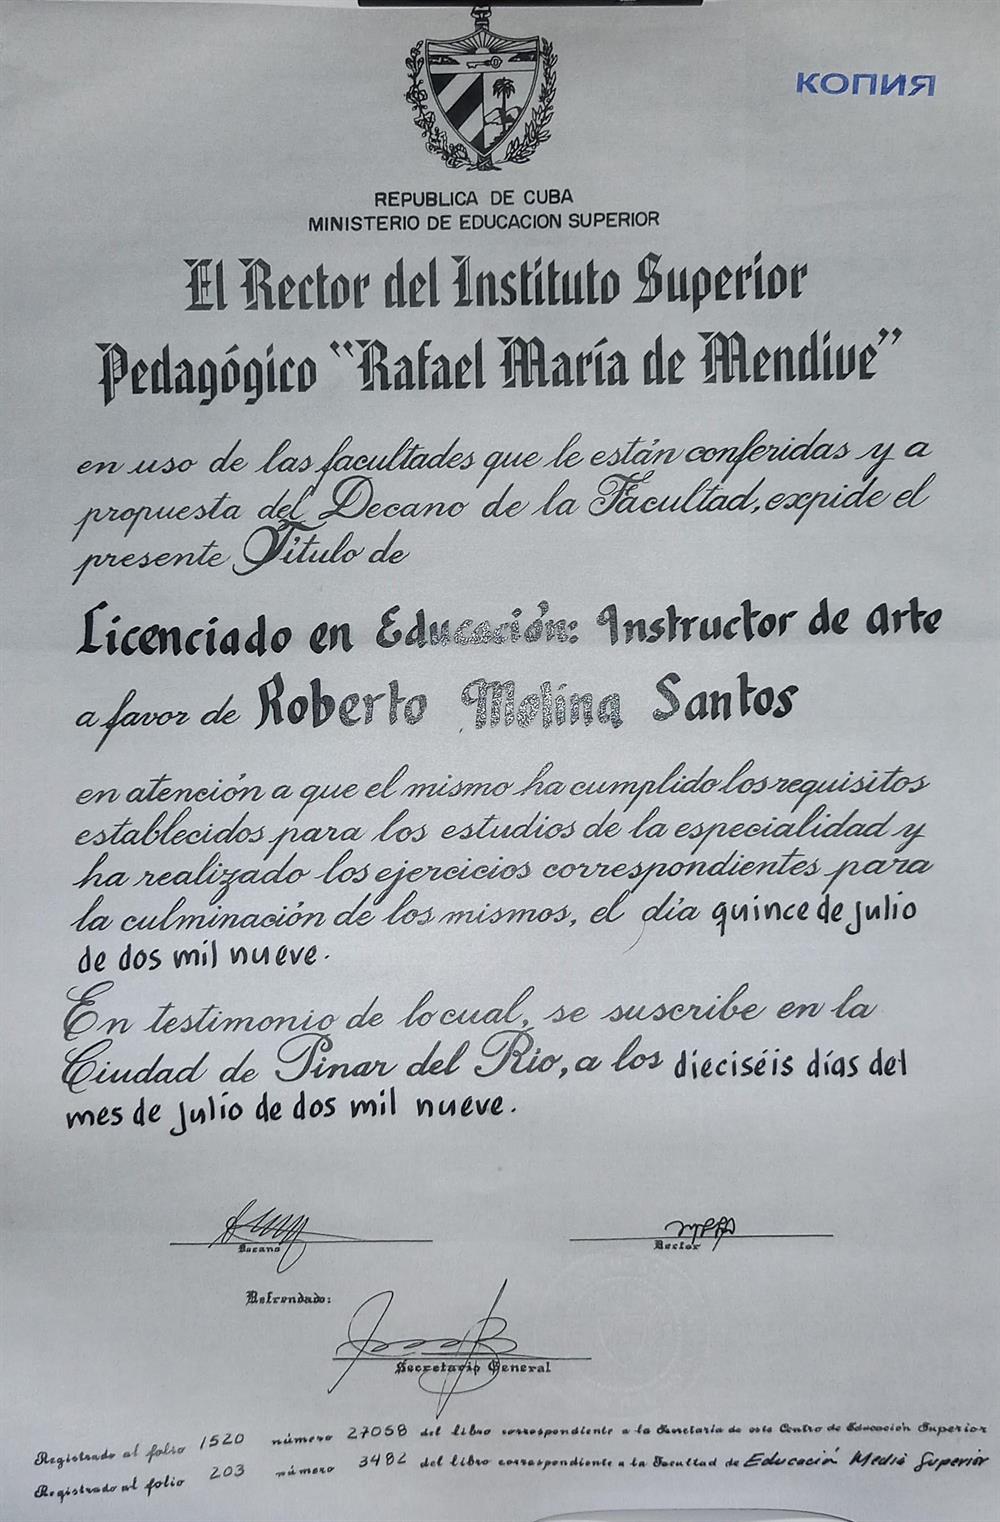 КОПИЯ
REPUBLICA DE CUBA
MINISTERIO DE EDUCACION SUPERIOR
El Rector del Instituto Superior
Pedagógico “Rafael María de Mendive”
en uso de las facultades que le están conferidas y a
propuesta del Decano de la Facultad, expide el
presente Título de
Licenciado en Educación: Instructor de Arte
a favor de Roberto Molina Santos
en atención a que el mismo ha cumplido los requisitos
establecidos para los estudios de la especialidad y
ha realizado los ejercicios correspondientes para
la culminación de los mismos, el día quince de julio
de dos mil nueve.
En testimonio de lo cual, se suscribe en la
Ciudad de Pinar del Río, a los dieciséis días del
mes de julio de dos mil nueve.
Decano
Rector
Refrendado:
Secretario General
Registrado al folio 1520 número 27058 del libro correspondiente a la Secretaría de este Centro de Educación Superior
Registrado al folio 203 número 3482 del libro correspondiente a la Facultad de Educación Media Superior